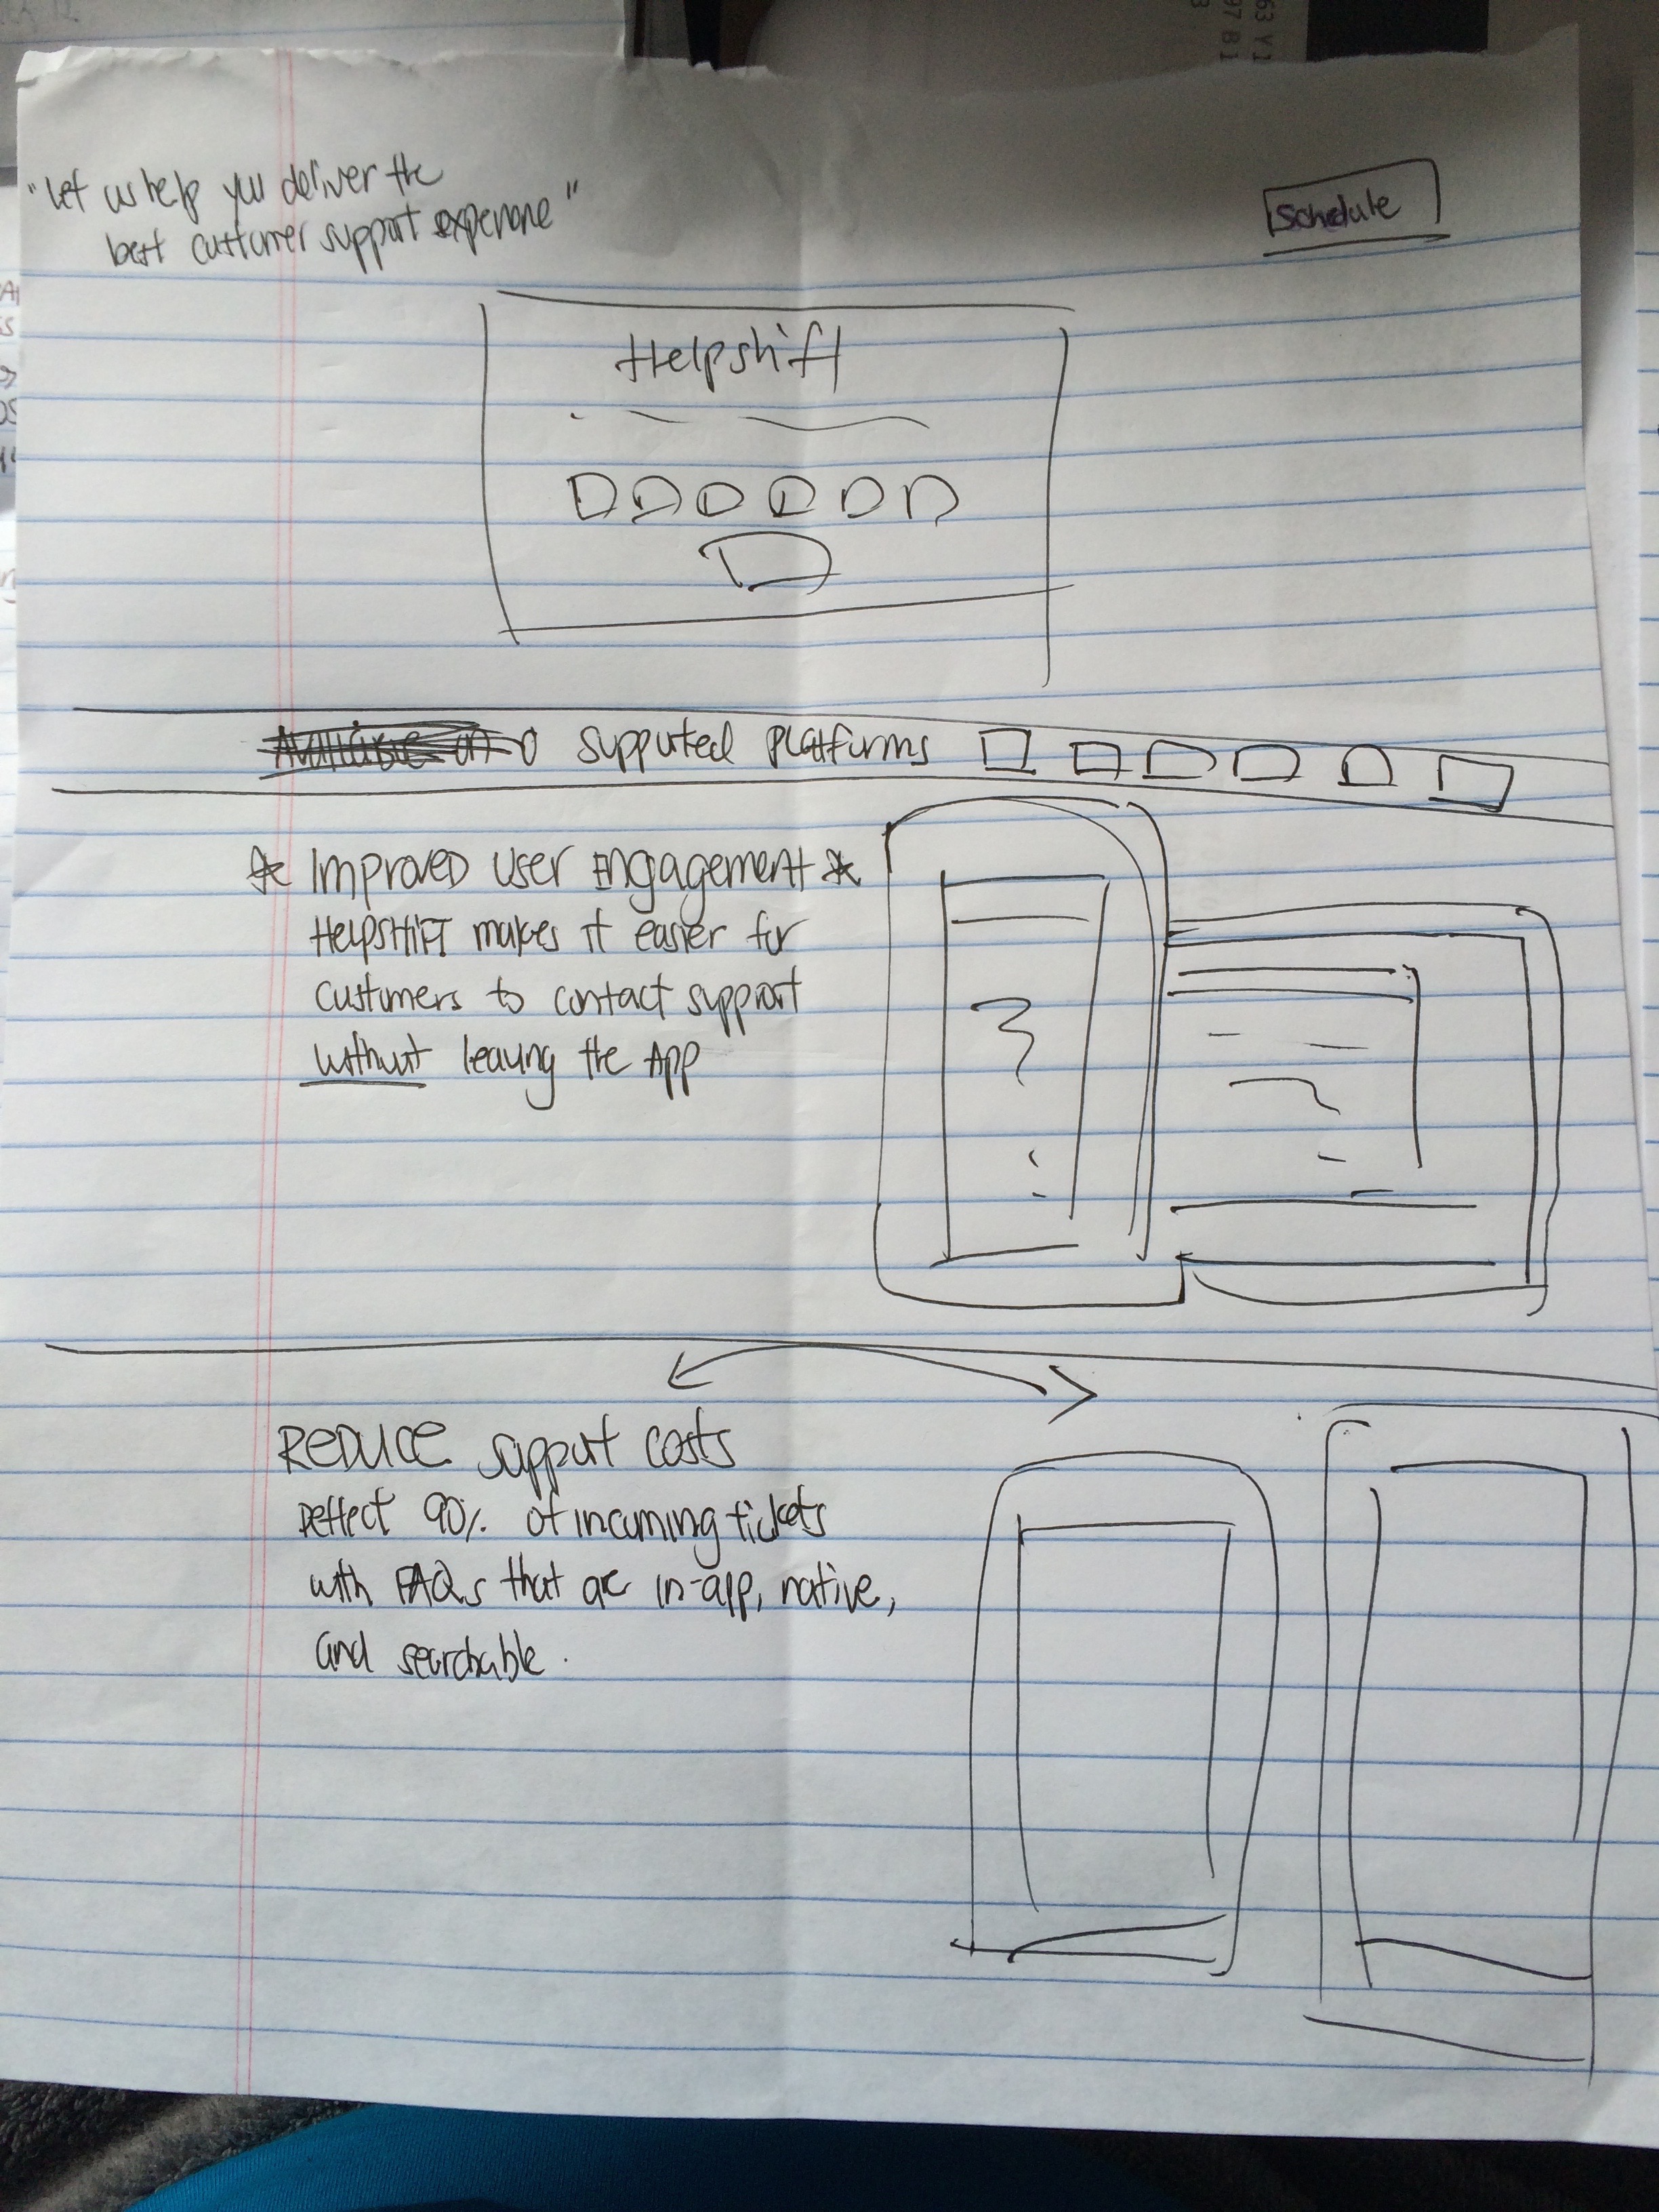 "Let us help you deliver the
best customer support experience"
Schedule
Helpshift
Available on supported platforms
* Improved User Engagement *
HelpSHIFT makes it easier for
customers to contact support
without leaving the App
REDUCE support costs
Deflect 90% of incoming tickets
with FAQs that are in-app, native,
and searchable.
63 YJ
97 B1